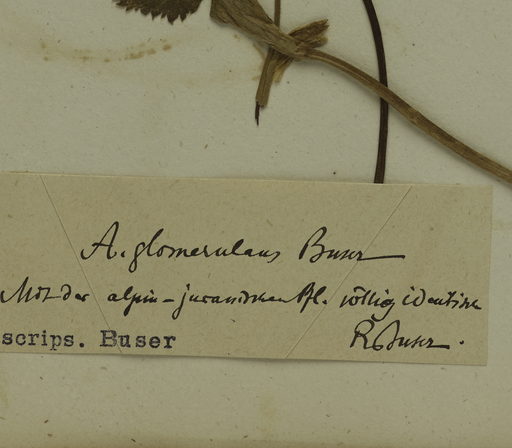 A. glomerulans Buser
Mit der alpin-jurassischen Pfl. völlig identisch
R. Buser.
scrips. Buser